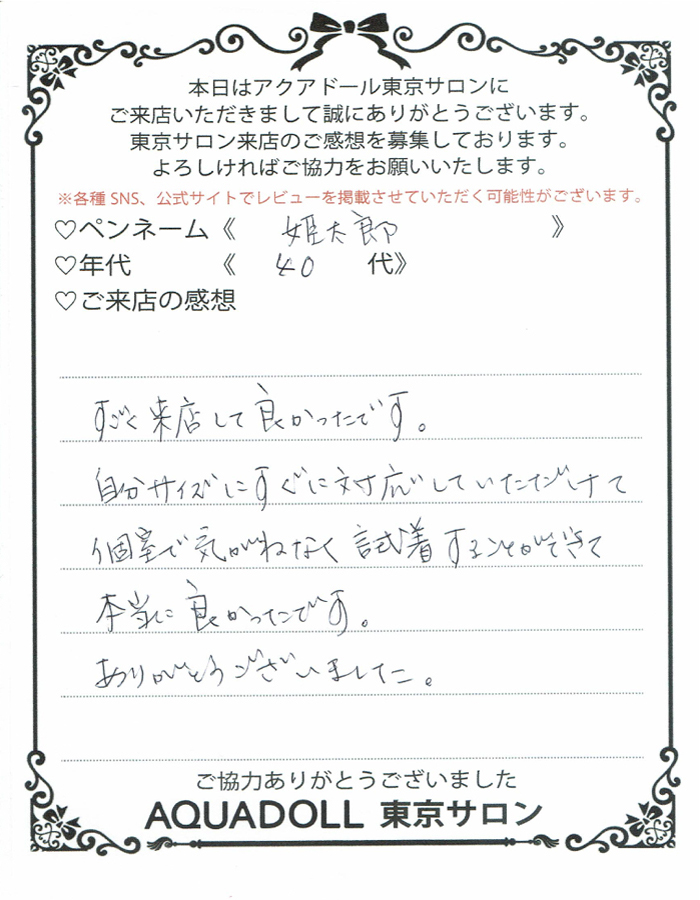 本日はアクアドール東京サロンに
ご来店いただきまして誠にありがとうございます。
東京サロン来店のご感想を募集しております。
よろしければご協力をお願いいたします。
※各種 SNS、公式サイトでレビューを掲載させていただく可能性がございます。
♡ペンネーム《 姫太郎 》
♡年代 《 40 代》
♡ご来店の感想
すごく来店して良かったです。
自分サイズにすぐに対応していただけて
個室で気がねなく試着することができて
本当に良かったです。
ありがとうございました。
ご協力ありがとうございました
AQUADOLL 東京サロン